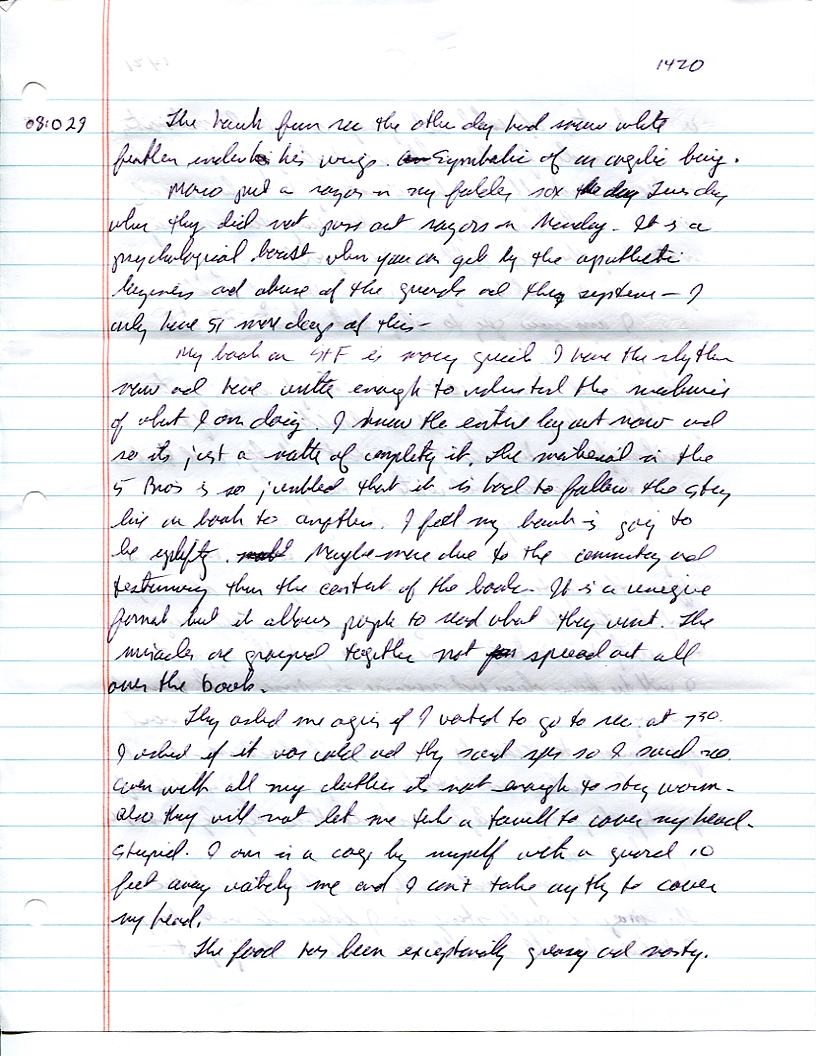 1420
08:029
The hawk from rec the other day had snow white
feathers under his wings. Symbolic of an angelic being.
Marco put a razor in my folder box the day Tuesday
when they did not pass out razors on Monday. It is a
psychological boost when you can get by the apathetic
laziness and abuse of the guards and they system - I
only have 51 more days of this -
My book on is moving quick I have the rhythm
now and have written enough to understand the mechanics
of what I am doing. I know the entire lay out now and
so its just a matter of completing it. The material in the
5 Bros is so jumbled that it is hard to follow the story
line on book to another. I feel my book is going to
be uplifting. Maybe more due to the commentary and
testimony than the content of the book. It is a unique
format but it allows people to read what they want. The
miracles are grouped together not spread out all
over the book.
They asked me again if I wanted to go to rec at 730.
I asked if it was cold and they said yes so I said no.
Even with all my clothes its not enough to stay warm -
also they will not let me take a towell to cover my head.
Stupid. I am in a cage by myself with a guard 10
feet away watching me and I can't take anything to cover
my head.
The food has been exceptionally greasy and nasty.